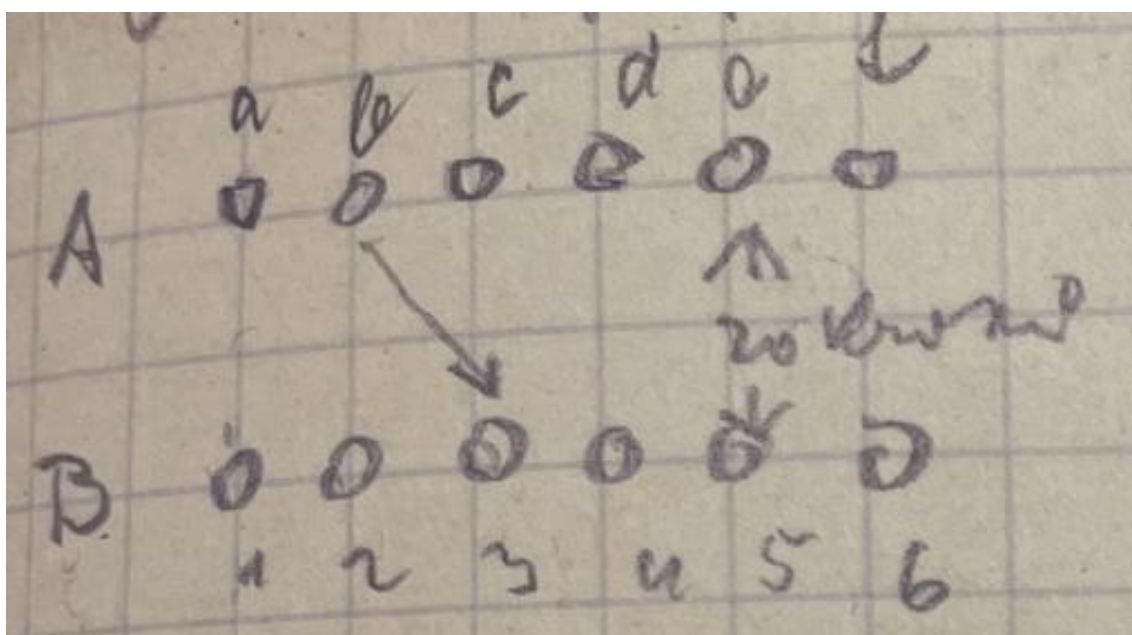 a b c d e
A
20
B
1 2 3 4 5 6